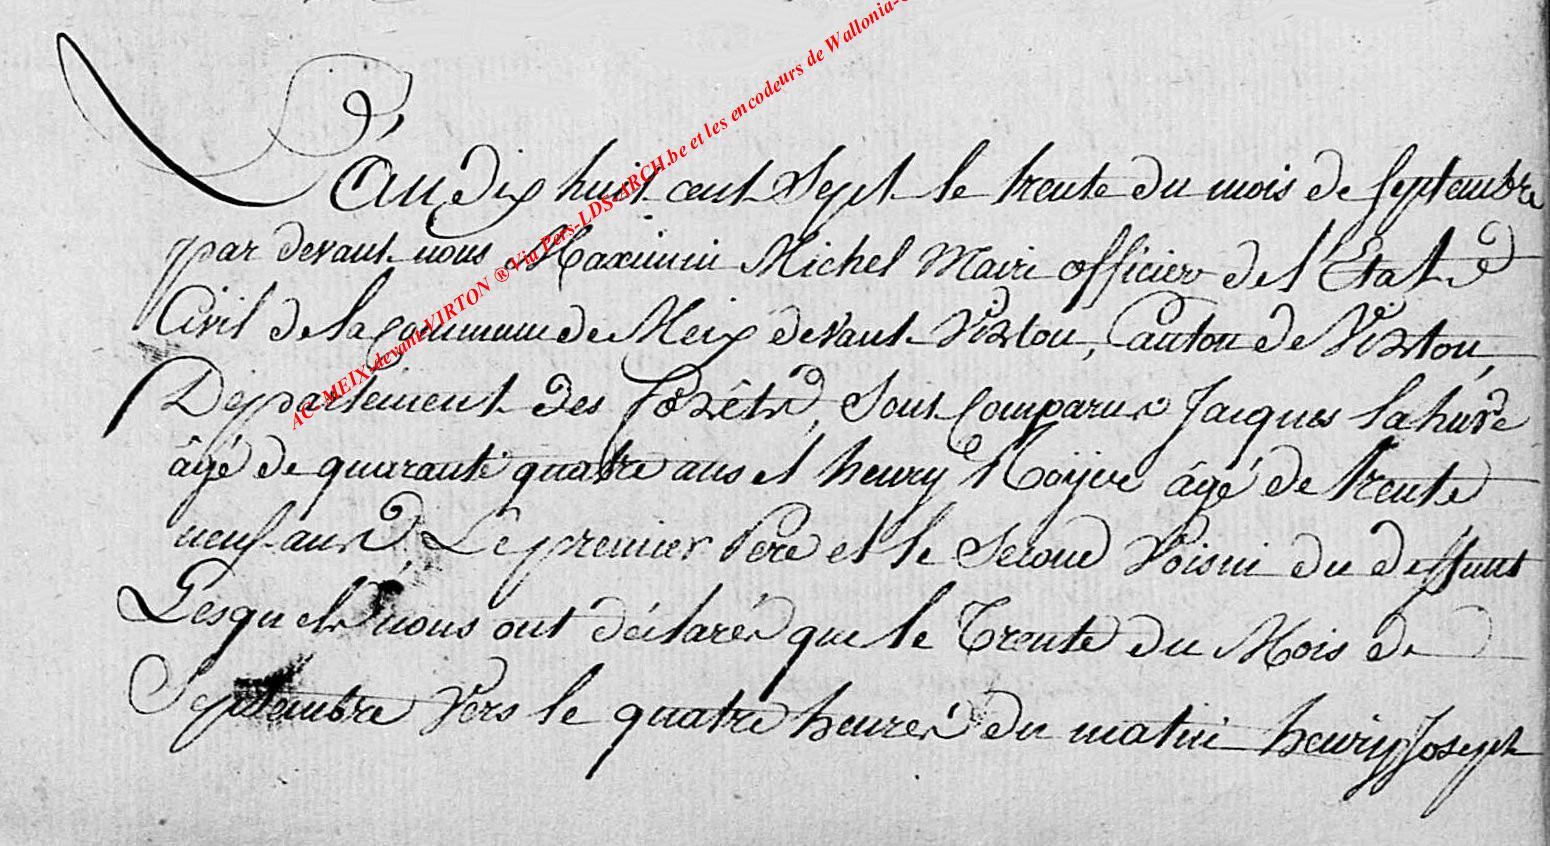 L'an dix huit cent Sept le trente du mois de Septembre
par devant nous Maximin Michel Maire officier de l'Etat
Civil de la Commune de Meix devant Virton, Canton de Virton,
Département des Forêts, Sont Comparus Jacques Lahure
âgé de quarante quatre ans et henry âgé de trente
neuf ans Le premier Pere et le Second Voisin du deffunt
Lesquels nous ont déclarés que le Trente du Mois de
Septembre Vers le quatre heures du matin henry Joseph
AC-MEIX-devant-VIRTON ® Via Pers-LDS-ARCH.be et les encodeurs de Wallonia-